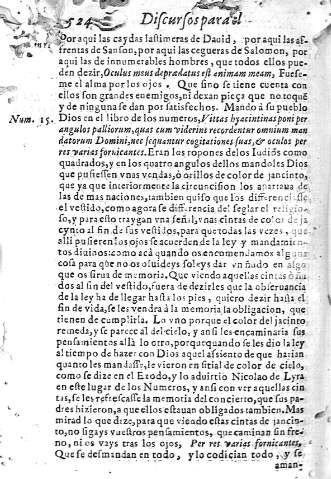 524 Discursos para el
Por aqui las caydas lastimeras de Dauid, por aqui las af-
frentas de Sanson, por aqui las cegueras de Salomon, por
aqui las de innumerables hombres, que todos ellos pue-
den dezir, Oculus meus depradatus est animam meam, Fuese-
me el alma por los ojos. Que sino se tiene cuenta con
ellos son grandes enemigos, ni dexan pieça que no toquē
y de ninguna se dan por satisfechos. Mandò a su pueblo
Num. 15. Dios en el libro de los numeros, Vittas hyacintinas poni per
angulos palliorum, quas cum viderint recordentur omnium man
datorum Domini, nec sequantur cogitationes suas, & oculos per
res varias fornicantes. Eran los ropones de los Iudiòs como
quadrados, y en los quatro angulos dellos mandoles Dios
que pusiessen vnas vendas, ò orillos de color de jacinto,
que ya que interiormente la circuncision los apartaua de
las de mas naciones, tambien quiso que los differenciasse
el vestido, como agora se differencia del seglar el religio-
so, y para esto traygan vna señal, vnas cintas de color de ja
cynto al fin de sus vestidos, para que todas las vezes, que
alli pusieren los ojos se acuerden de la ley y mandamien-
tos diuinos: como acà quando os encomendamos alguna
cosa para que no os oluideys soleys dar vn ñudo en algo
que os sirua de memoria. Que viendo aquellas cintas
dos al fin del vestido, fuera de dezirles que la obseruancia
de la ley ha de llegar hasta los pies, quiero dezir hasta el
fin de vida, se les vendrà a la memoria la obligacion, que
tienen de cumplirla. Lo vno porque el color del jacinto
remeda, y se parece al del cielo, y ansi les encaminaria sus
pensamientos allà lo otro, porque quando se les dio la ley
al tiempo de hazer con Dios aquel assiento de que harian
quanto les mandasse, le vieron en sitial de color de cielo,
como se dize en el Exodo, y lo aduirtio Nicolao de Lyra
en este lugar de los Numeros, y ansi con ver aquellas cin
tas, se les refrescasse la memoria del concierto, que sus pa-
dres hizieron, a que ellos estauan obligados tambien. Mas
mirad lo que dize, para que viendo estas cintas de jacin-
to, no sigays vuestros pensamientos, que caminan sin fre-
no, ni os vays tras los ojos, Per res varias fornicantes,
Que se desmandan en todo, y lo codician todo, y se
aman-